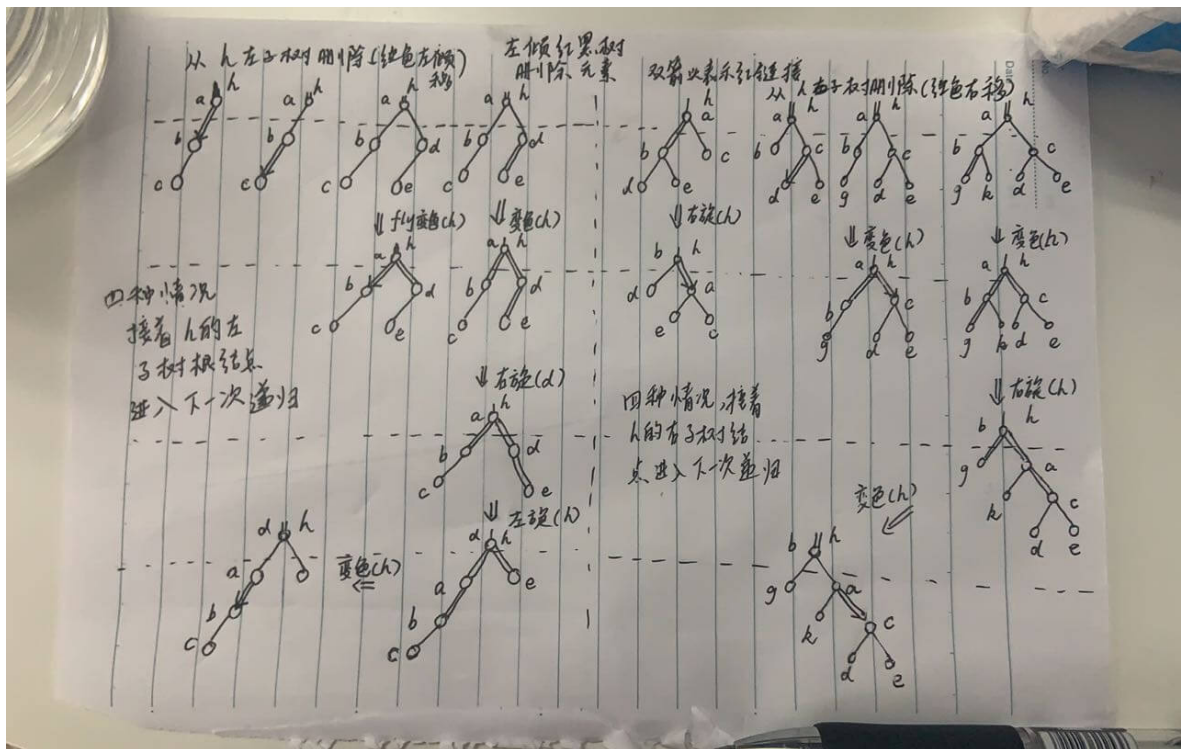 从 h 左子树删除(红色左倾移)
左倾红黑树
删除元素
双箭头表示红链接
从 h 右子树删除(红色右移)
a h
b
c
a h
b
c
a h
b d
c e
a h
b d
c e
h
a
b c
d e
a h
b c
d e
a h
b c
g d e
a h
b c
g k d e
⇓ fly变色(h)
⇓ 变色(h)
⇓ 右旋(h)
⇓ 变色(h)
⇓ 变色(h)
a h
b d
c e
a h
b d
c e
b h
d a
e c
a h
b c
g d e
a h
b c
g k d e
四种情况
接着 h的左
子树根结点
进入下一次递归
⇓ 右旋(d)
a h
b d
c e
四种情况,接着
h的右子树结
点进入下一次递归
⇓ 右旋(h)
b h
g a
k c
d e
⇓ 左旋(h)
d h
a e
b
c
变色(h)
⇐
d h
a
b
c
变色(h)
b h
g a
k c
d e